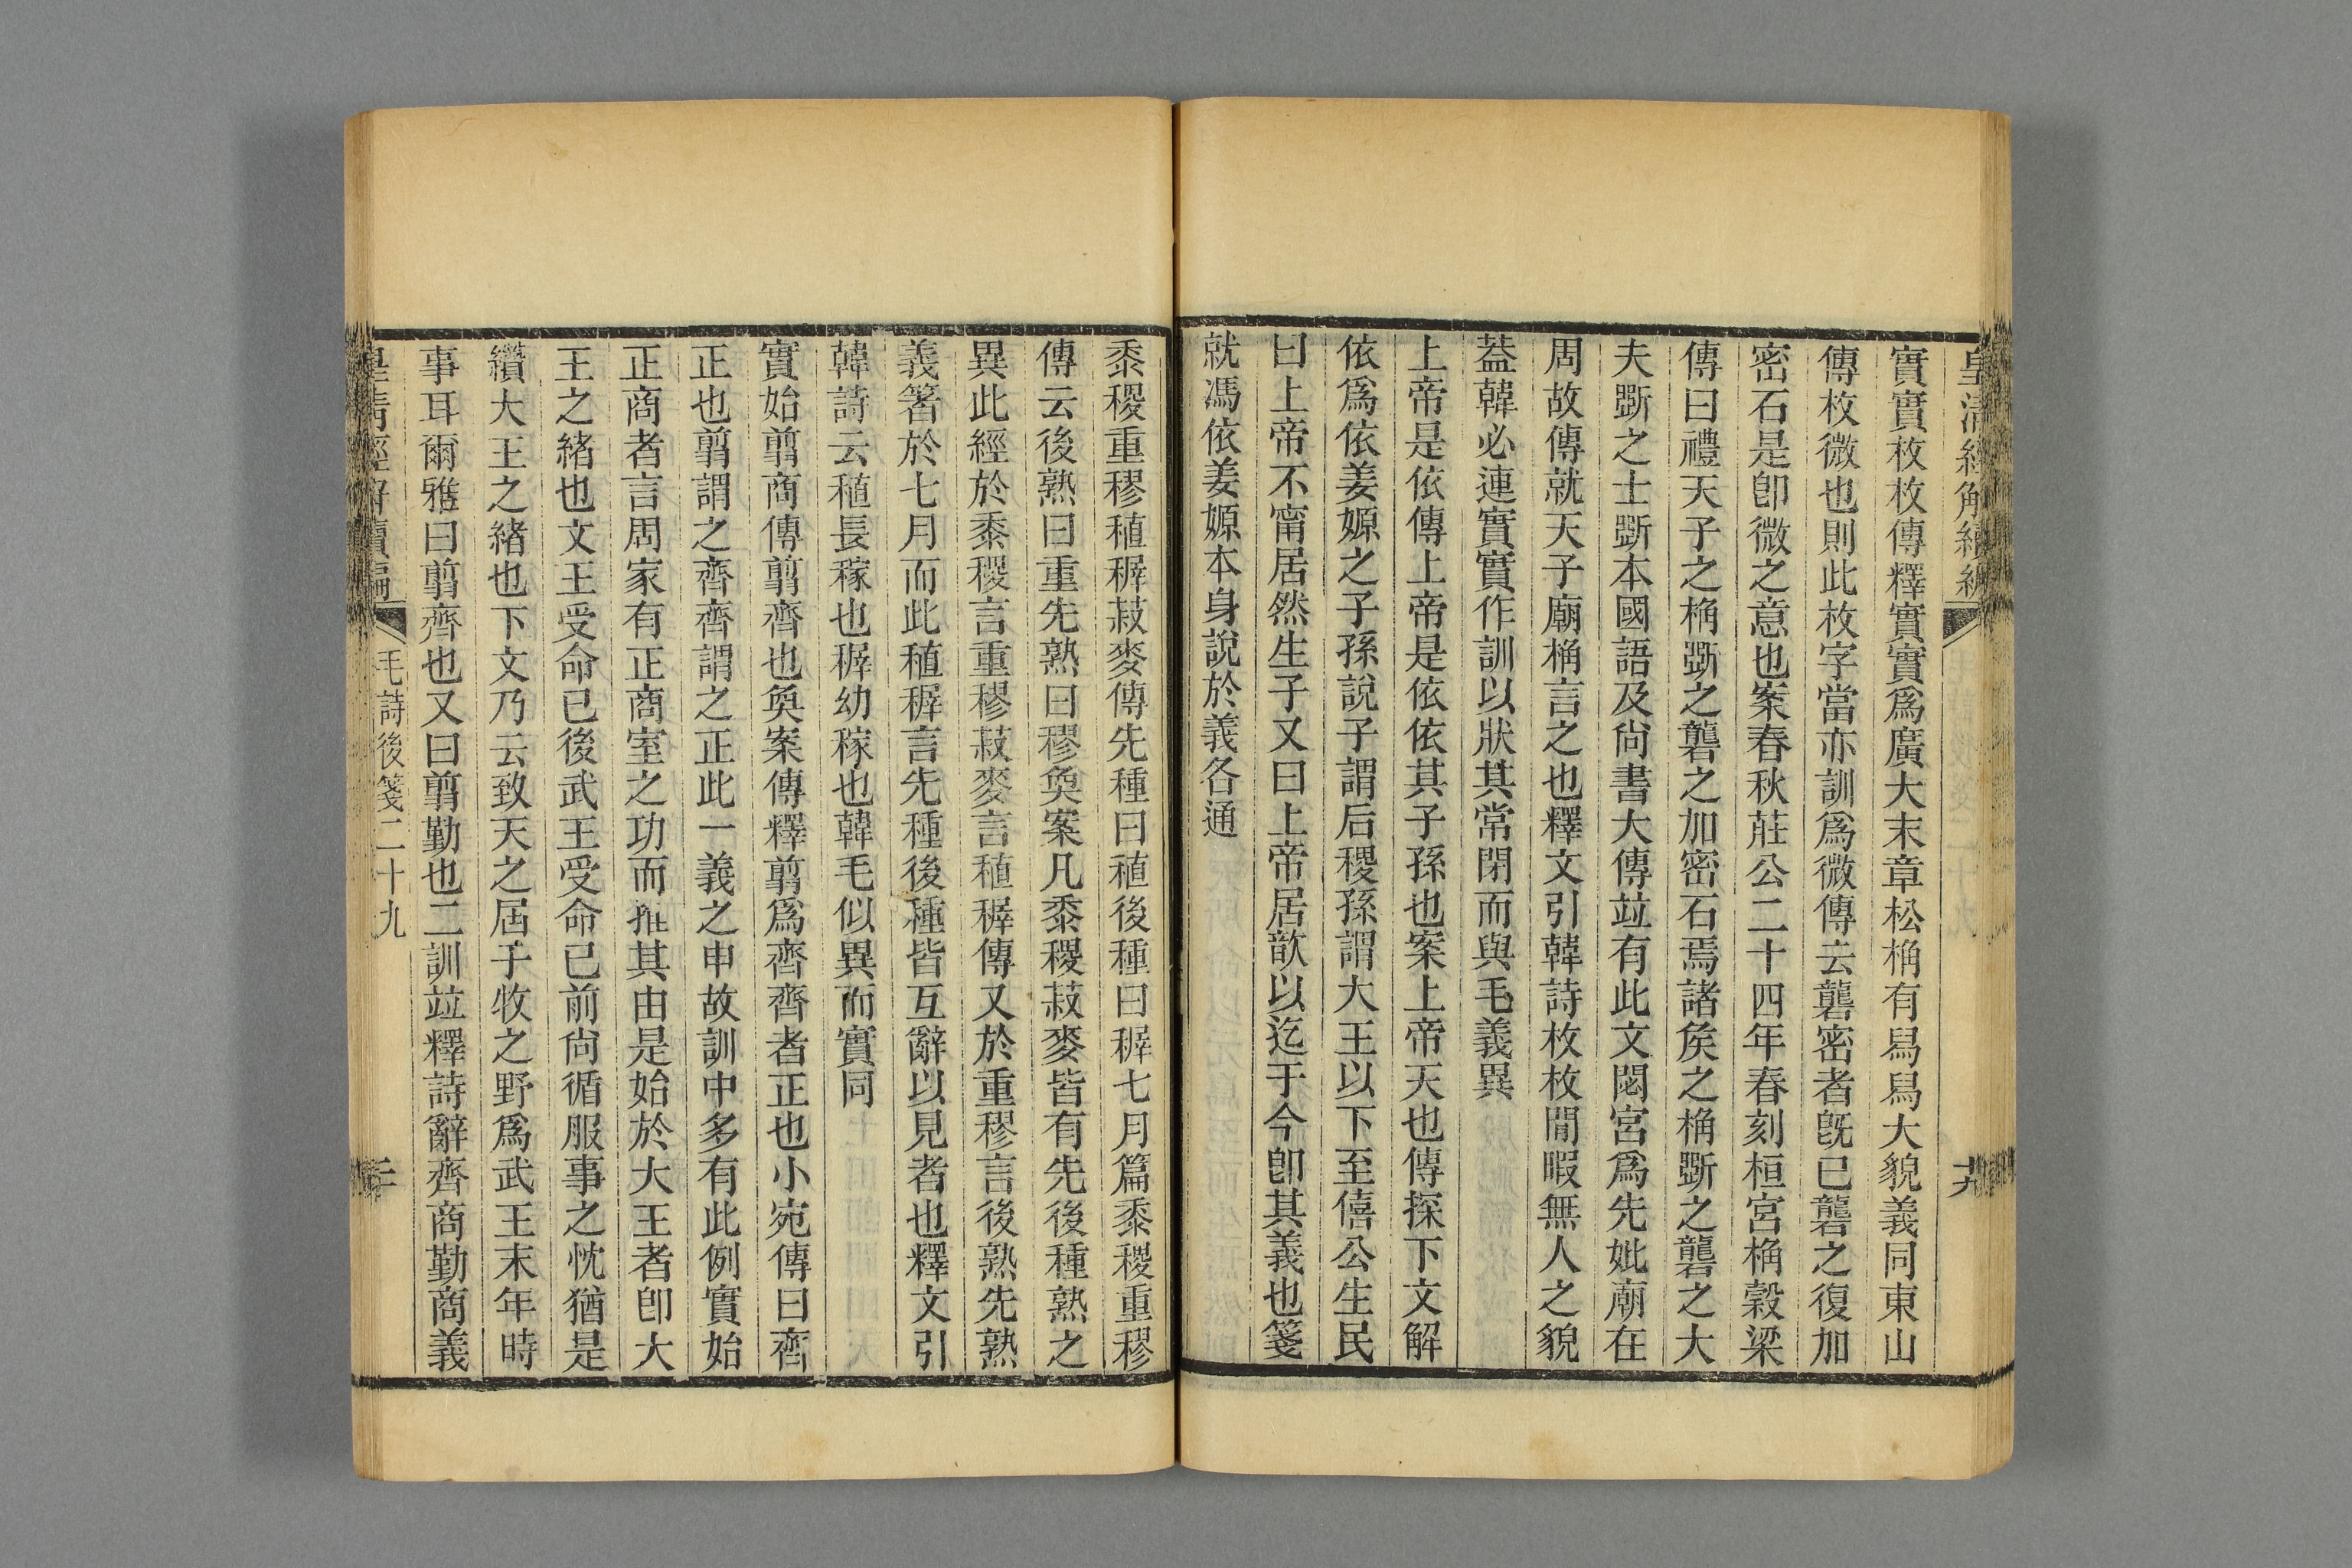 皇清經解續編
十九
實實枚枚傳釋實實爲廣大末章松桷有舄舄大貌義同東山
傳枚微也則此枚字當亦訓爲微傳云礱密者旣已礱之復加
密石是卽微之意也案春秋莊公二十四年春刻桓宮桷穀梁
傳曰禮天子之桷斲之礱之加密石焉諸矦之桷斲之礱之大
夫斲之士斲本國語及尙書大傳竝有此文閟宮爲先妣廟在
周故傳就天子廟桷言之也釋文引韓詩枚枚閒暇無人之貌
葢韓必連實實作訓以狀其常閉而與毛義異
上帝是依傳上帝是依依其子孫也案上帝天也傳探下文解
依爲依姜嫄之子孫說子謂后稷孫謂大王以下至僖公生民
曰上帝不甯居然生子又曰上帝居歆以迄于今卽其義也箋
就馮依姜嫄本身說於義各通
黍稷重穋稙稺菽麥傳先種曰稙後種曰稺七月篇黍稷重穋
傳云後熟曰重先熟曰穋奐案凡黍稷菽麥皆有先後種熟之
異此經於黍稷言重穋菽麥言稙稺傳又於重穋言後熟先熟
義箸於七月而此稙稺言先種後種皆互辭以見者也釋文引
韓詩云稙長稼也稺幼稼也韓毛似異而實同
實始翦商傳翦齊也奐案傳釋翦爲齊齊者正也小宛傳曰齊
正也翦謂之齊齊謂之正此一義之申故訓中多有此例實始
正商者言周家有正商室之功而推其由是始於大王者卽大
王之緒也文王受命已後武王受命已前尙循服事之忱猶是
纘大王之緒也下文乃云致天之屆于牧之野爲武王末年時
事耳爾雅曰翦齊也又曰翦勤也二訓竝釋詩辭齊商勤商義
皇清經解續編
毛詩後箋二十九